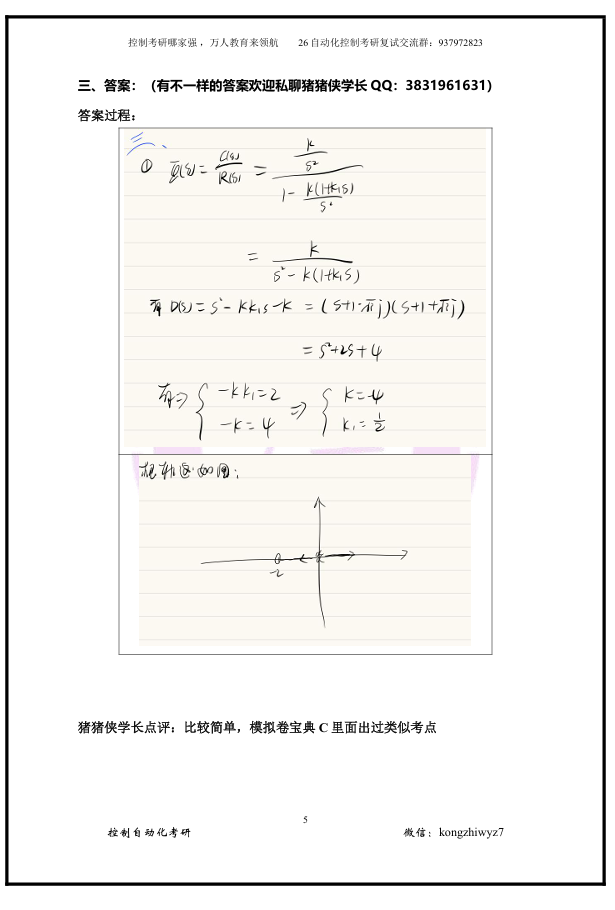 控制考研哪家强，万人教育来领航 26自动化控制考研复试交流群：937972823
三、答案：（有不一样的答案欢迎私聊猪猪侠学长 QQ：3831961631）
答案过程：
三、
① Φ(s) = C(s)/R(s) = (k/s²)/(1 - k(1+k₁s)/s²)
= k/(s² - k(1+k₁s))
有 D(s) = s² - kk₁s - k = (s+1-√3j)(s+1+√3j)
= s²+2s+4
有⇒ { -kk₁=2 ⇒ { k=-4
-k=4 k₁=1/2
根轨迹如图：
-2
猪猪侠学长点评：比较简单，模拟卷宝典 C 里面出过类似考点
5
控制自动化考研 微信：kongzhiwyz7